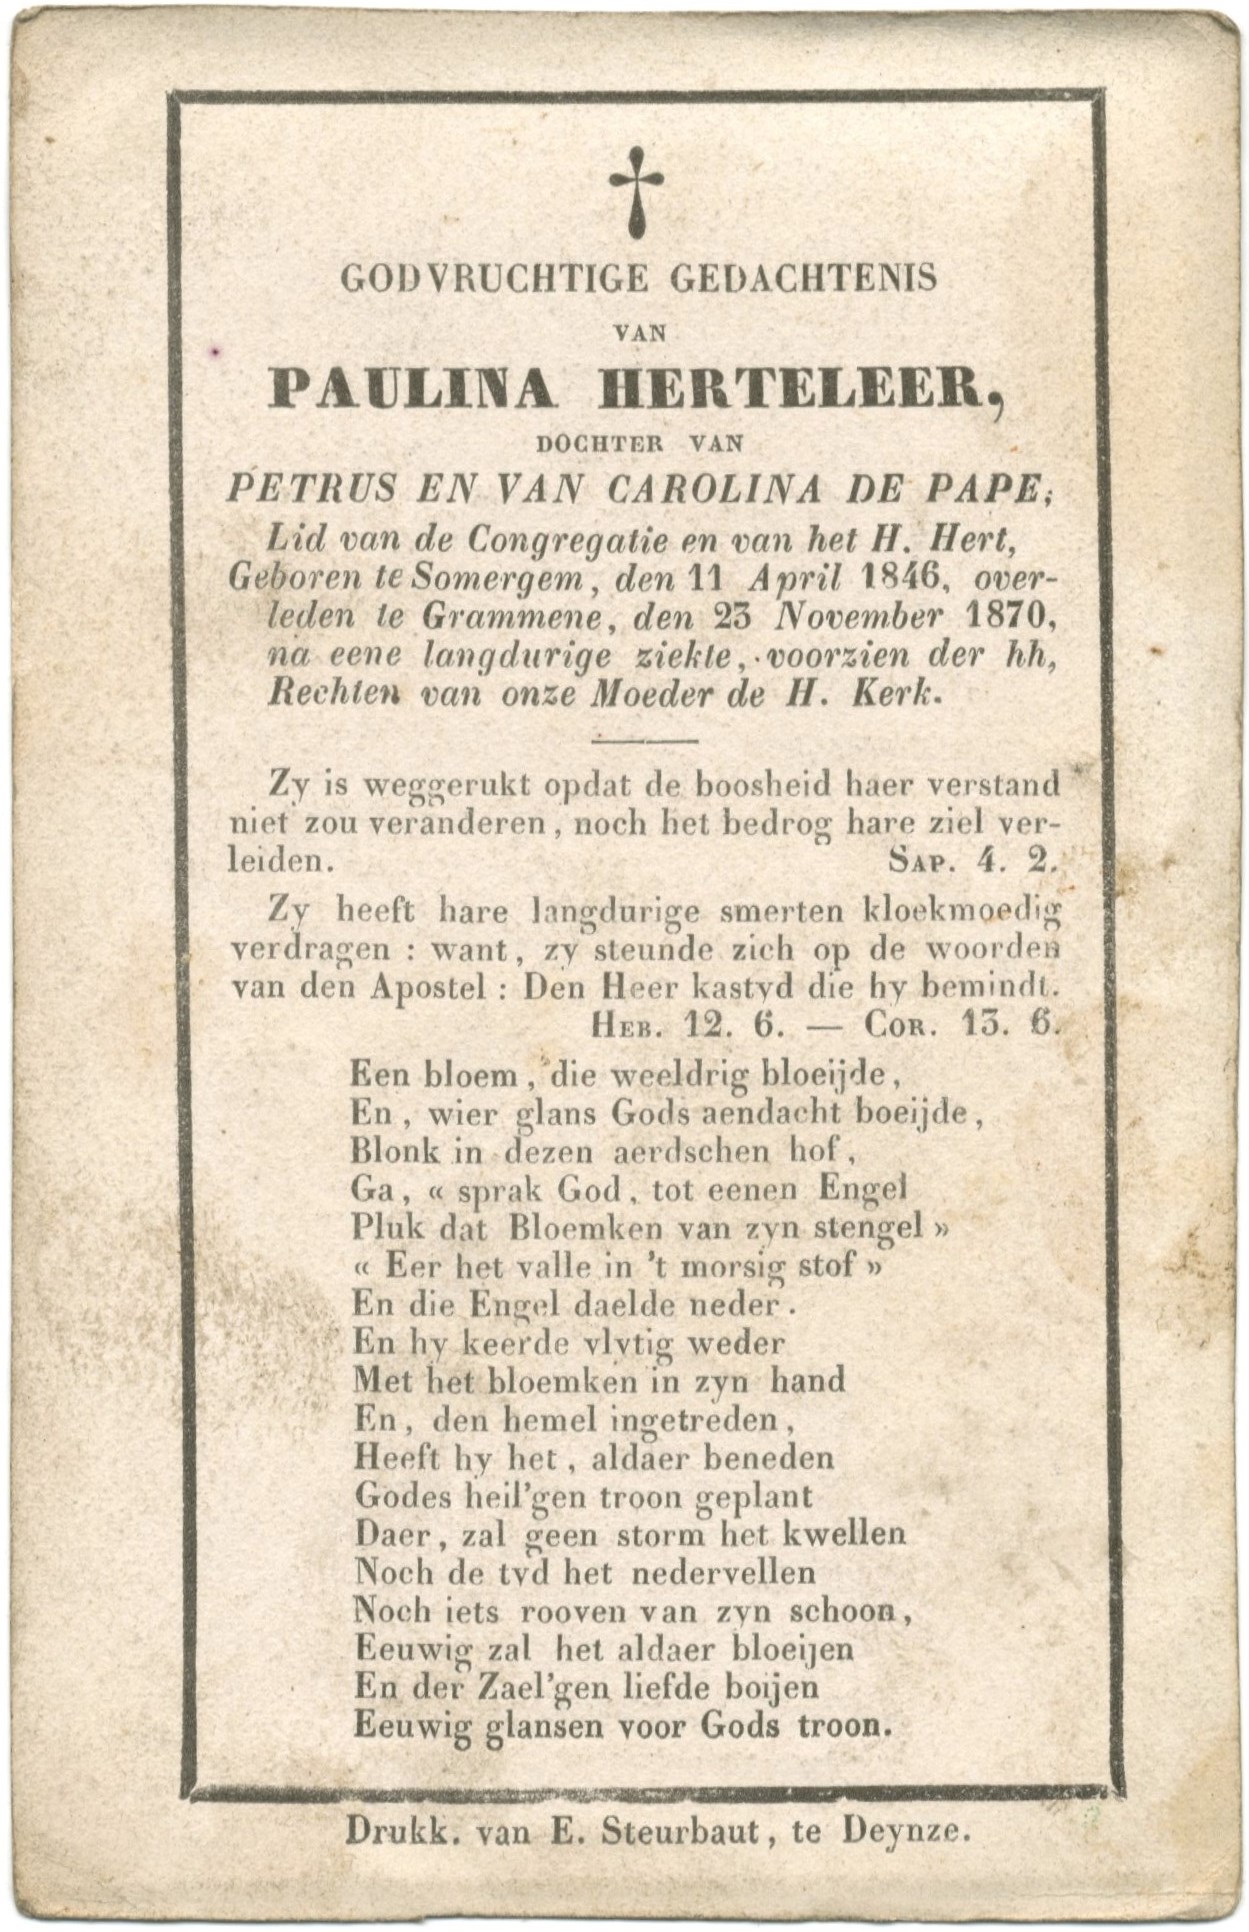 GODVRUCHTIGE GEDACHTENIS
VAN
PAULINA HERTELEER,
DOCHTER VAN
PETRUS EN VAN CAROLINA DE PAPE;
Lid van de Congregatie en van het H. Hert,
Geboren te Somergem, den 11 April 1846, over-
leden te Grammene, den 23 November 1870,
na eene langdurige ziekte, voorzien der hh,
Rechten van onze Moeder de H. Kerk.
Zy is weggerukt opdat de boosheid haer verstand
niet zou veranderen, noch het bedrog hare ziel ver-
leiden. SAP. 4. 2.
Zy heeft hare langdurige smerten kloekmoedig
verdragen : want, zy steunde zich op de woorden
van den Apostel : Den Heer kastyd die hy bemindt.
HEB. 12. 6. — COR. 13. 6.
Een bloem, die weeldrig bloeijde,
En, wier glans Gods aendacht boeijde,
Blonk in dezen aerdschen hof,
Ga, « sprak God, tot eenen Engel
Pluk dat Bloemken van zyn stengel »
« Eer het valle in 't morsig stof »
En die Engel daelde neder.
En hy keerde vlytig weder
Met het bloemken in zyn hand
En, den hemel ingetreden,
Heeft hy het, aldaer beneden
Godes heil'gen troon geplant
Daer, zal geen storm het kwellen
Noch de tyd het nedervellen
Noch iets rooven van zyn schoon,
Eeuwig zal het aldaer bloeijen
En der Zael'gen liefde boijen
Eeuwig glansen voor Gods troon.
Drukk. van E. Steurbaut, te Deynze.